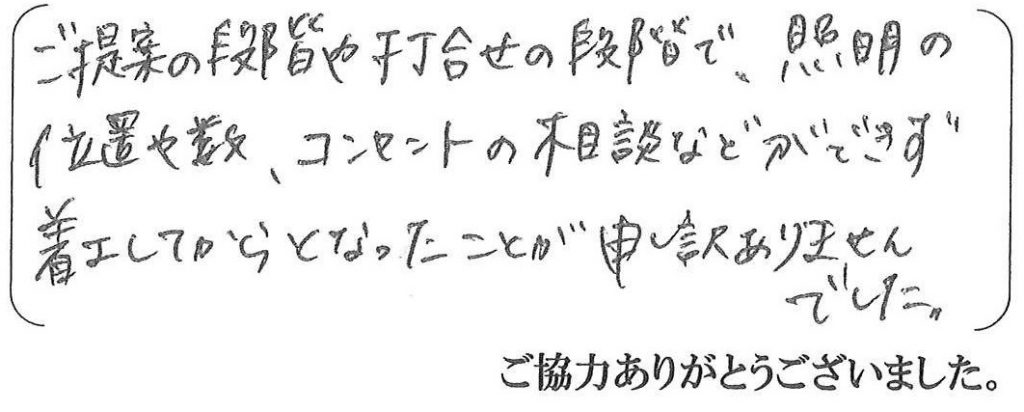 ご提案の段階や打合せの段階で、照明の
位置や数、コンセントの相談などができず
着工してからとなったことが申し訳ありません
でした。
ご協力ありがとうございました。